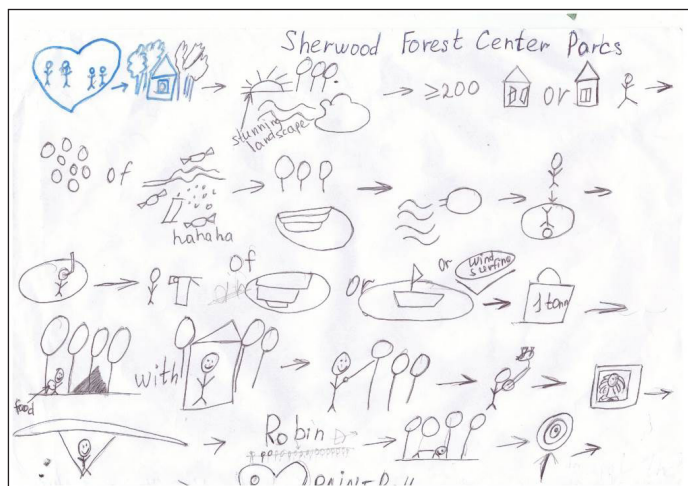 Sherwood Forest Center Parcs
stunning
landscape
≥200 or
of
hahaha
of or or wind
surfing
1 tonn
with
food
Robin